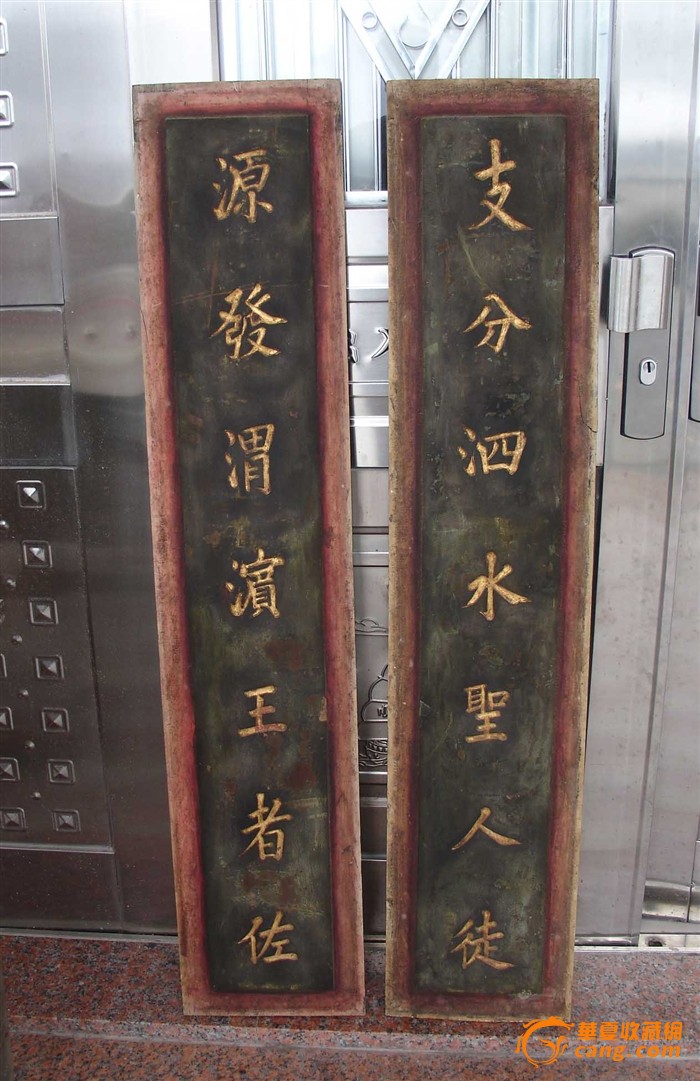 支分泗水聖人徒
源發渭濱王者佐
華夏收藏網
cang.com